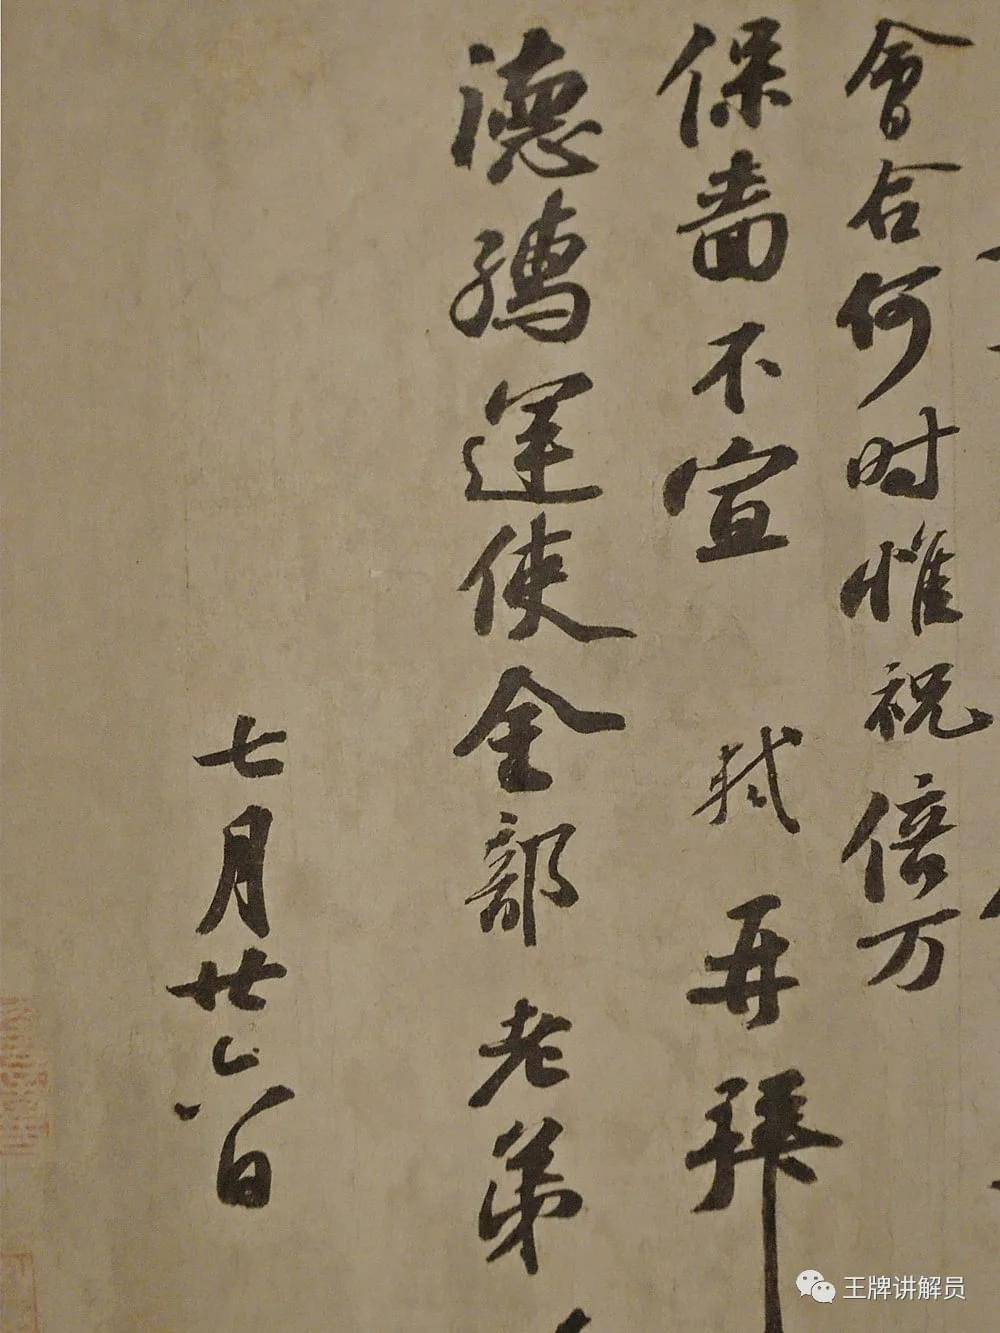 會合何時惟祝倍万
保嗇不宣　軾再拜
德孺運使金部老弟
七月廿六日
王牌讲解员